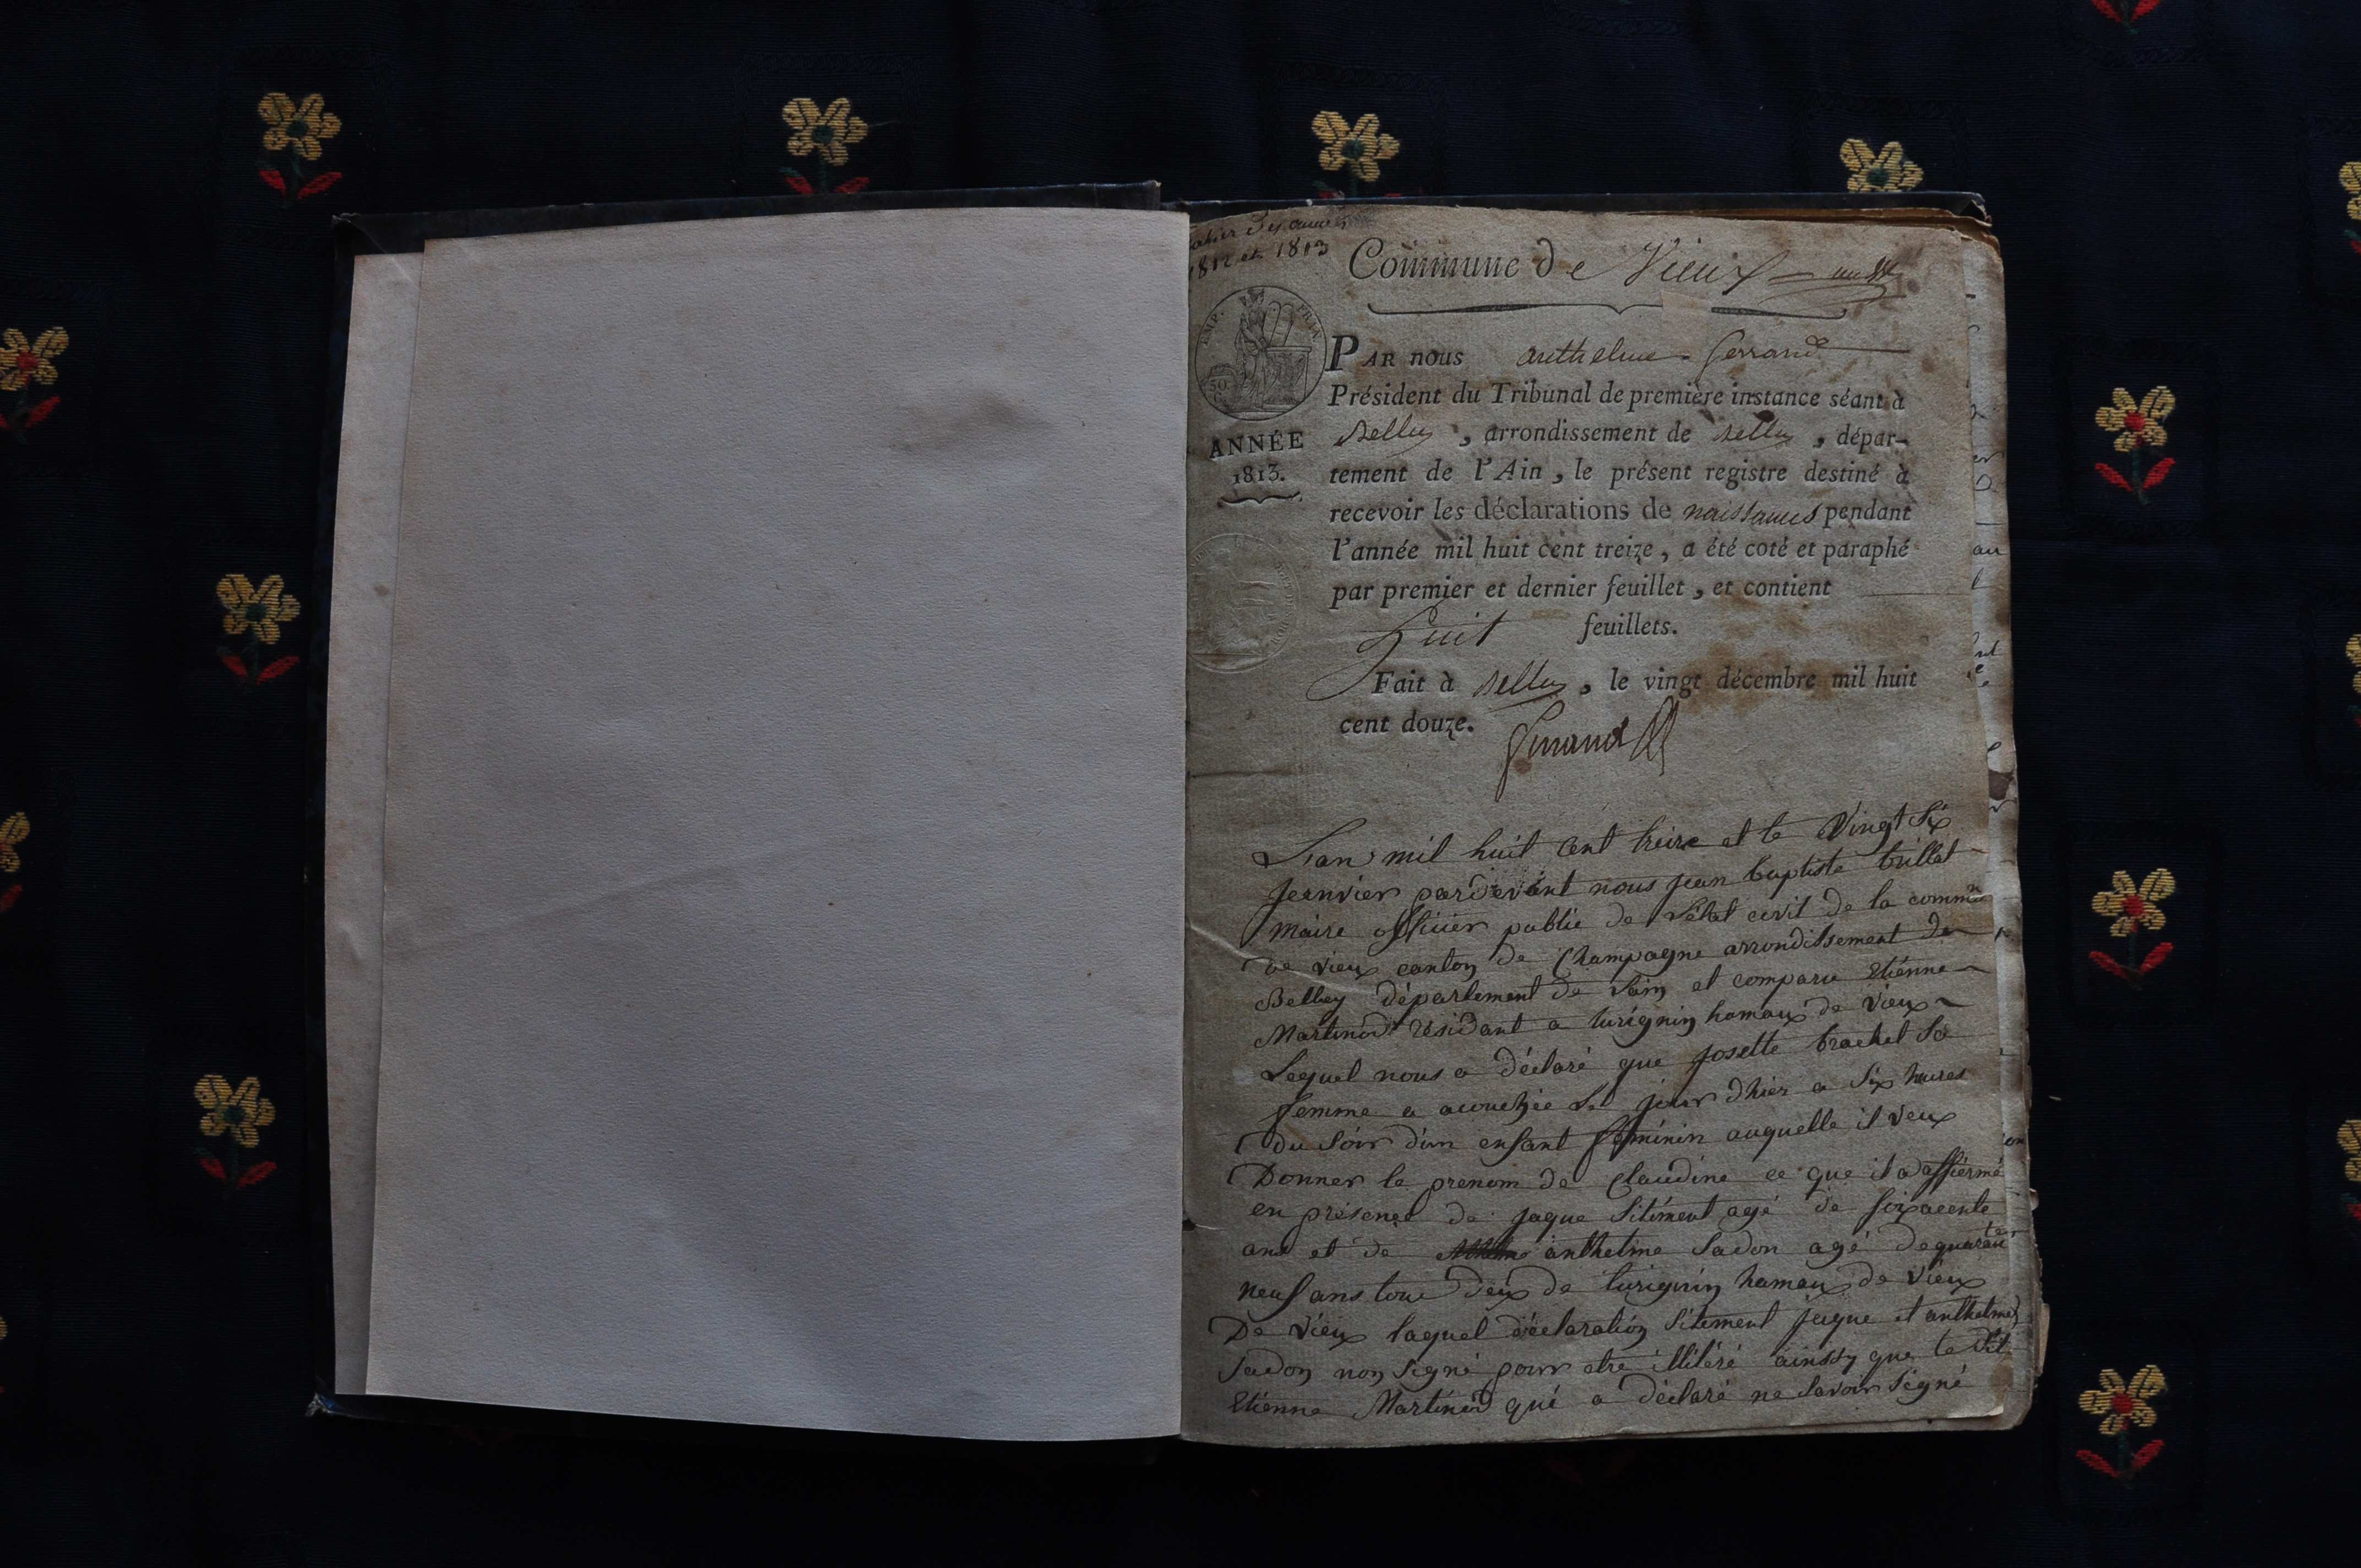 1812 et 1813
Commune de Vieux
EMP. FRAN.
50
C.
ANNÉE
1813.
PAR nous anthelme ferrand
Président du Tribunal de première instance séant à
Belley, arrondissement de Belley, dépar-
tement de l'Ain, le présent registre destiné à
recevoir les déclarations de naissances pendant
l'année mil huit cent treize, a été coté et paraphé
par premier et dernier feuillet, et contient
huit feuillets.
Fait à Belley, le vingt décembre mil huit
cent douze.
ferrand
L'an mil huit cent treize et le Vingt Six
jeanvier pardevant nous jean baptiste brillat
maire officier public de l'état civil de la commune
de vieux canton de Champagne arrondissement de
Belley département de l'ain et comparu Etiénne
Martinod résidant a lurignin hamaux de Vieux
Lequel nous a déclaré que josette brachet sa
femme a acouchée le jour d'hier a six heures
du soir d'un enfant féminin auquelle il veux
Donner le prenom de Claudine ce que il a affiérmé
en présence de jaque Sitément agé de soixacente
ans et de anthelme Sadon agé de quarante
neuf ans tous deux de lurignin hamaux de vieux
De vieux laquel déclaration Sitement jaque et anthelme
Sadon non signé pour etre illitéré ainssy que le dit
Etiénne Martinod qui a déclaré ne savoir signé